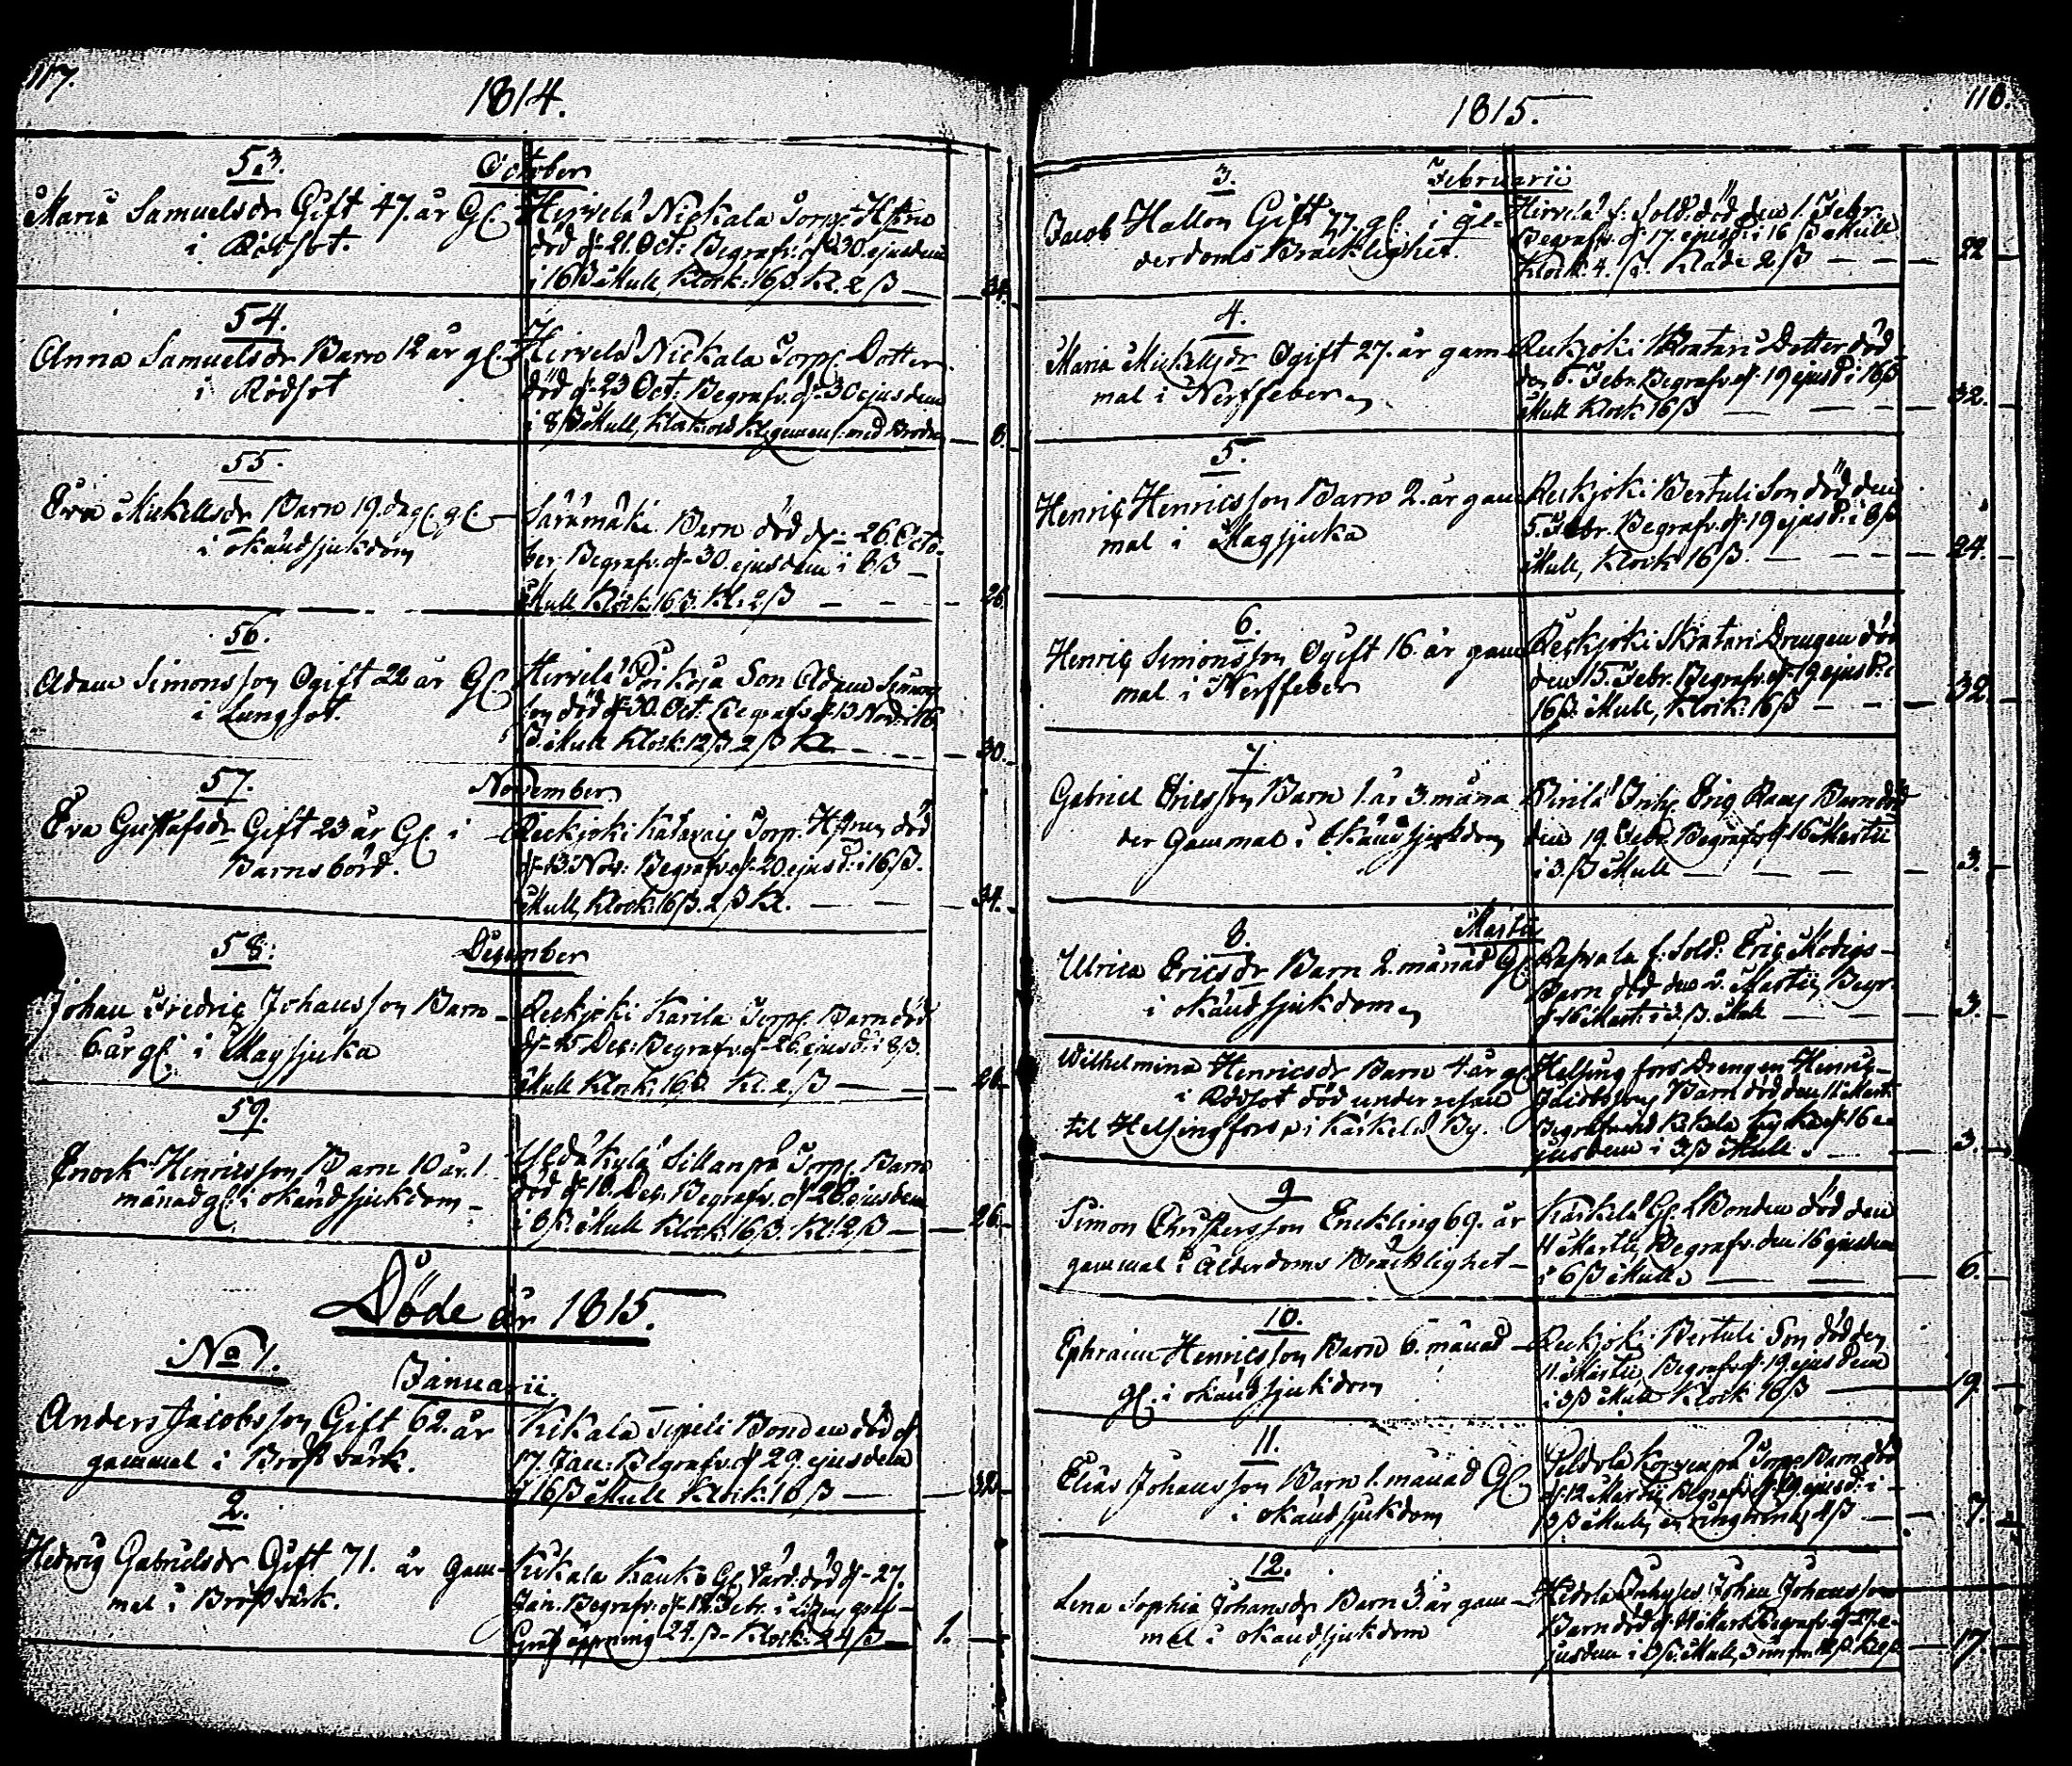 117.
1814.
53.
October
Maria Samuelsdr Gift 47. år Gl.
i Rödsot.
Hirvelä Nickala Torp. Hustru
död d. 21. Oct: Begrafv. d. 30. ejusdem
i 16 β Mull, Klock: 16 β. Kl. 2 β
34.
54.
Anna Samuelsdr Barn 12 år gl.
i Rödsot
Hirvelä Nickala Torp. Dotter
död d. 23 Oct: Begrafv. d. 30 ejusdem
i 8 β Mull, Klock och Kl. gemens. med Modren
8.
55.
Eva Michelsdr Barn 19. dag. gl.
i okänd sjukdom
Säränmäki Barn död d. 26. Octo-
ber Begrafv. d. 30. ejusdem i 8 β
Mull Klock 16 β. Kl. 2 β
26.
56.
Adam Simonsson Ogift 22 år Gl.
i Lungsot.
Hirvelä Son Adam Simons-
son död d. 30. Oct: Begrafv. d. 13 Nov: i 16
β. Mull Klock: 12 β. 2 β Kl.
30.
57.
November
Eva Gustafsdr Gift 23 år Gl. i
Barnsbörd.
Reckjoki Torp. Hustru död
d. 13. Nov: Begrafv. d. 20. ejusd: i 16 β.
Mull, Klock: 16 β. 2 β Kl.
34.
58.
December
Johan Fredric Johansson Barn
6 år gl. i Magsjuka
Reckjoki Karila Torp. Barn död
d. 15 Dec: Begrafv. d. 26. ejusd: i 8 β.
Mull Klock: 16 β. Kl. 2. β
26.
59.
Enock Henricsson Barn 10 år. 1.
månad gl. i okänd sjukdom
Yldäkylä Sillanpä Torp. Barn
död d. 18. Dec. Begrafv. d. 26 ejusdem
i 8 β. Mull Klock: 16 β. Kl: 2 β
26.
Döde år 1815.
No 1.
Januarii.
Anders Jacobsson Gift 62. år
gammal i Bröstvärk.
Kikala Sipeli Bonden död d.
17. Jan: Begrafv. d. 29. ejusdem
i 16 β Mull Klock: 16 β
32.
2.
Hedvig Gabrielsdr Gift 71. år gam-
mal i Bröstvärk.
Kikala Kauko Gl. Värd. död d. 27.
Jan. Begrafv. d. 12. Febr. i
Graföppning 24. β Klock: 24 β
1.
1815.
118.
3.
Februarii
Jacob Hallon Gift 77. gl. i Ål-
derdoms Bräcklighet.
Hirvelä f. Sold. död den 1. Febr.
Begrafv. d. 17. ejusd: i 16 β Mull
Klock: 4. β. Kläde 2 β
22
4.
Maria Michelsdr Ogift 27. år gam-
mal i Nerffeber
Reckjoki Skratari Dotter död
den 5. Febr. Begrafv. d. 19 ejusd: i 16 β
Mull Klock 16 β
32.
5.
Henric Henricsson Barn 2. år gam-
mal i Magsjuka
Reckjoki Bertuli Son död den
5. Febr. Begrafv. d. 19 ejusd: i 8 β
Mull, Klock 16 β.
24.
6.
Henric Simonsson Ogift 16 år gam-
mal i Nerffeber
Reckjoki Skratari Drengen död
den 15. Febr. Begrafv. d. 19. ejusd: i
16 β. Mull, Klock: 16 β
32.
7.
Gabriel Ericsson Barn 1. år 3. måna
der Gammal i okänd sjukdom
Pirilä Inh. Eric Barn död
den 19. Febr. Begrafv. d. 16 Martii
i 3. β Mull
3.
8.
Martii
Ulrica Ericsdr Barn 2. månad Gl.
i okänd sjukdom
f. Sold: Eric Modigs
Barn död den 2. Martii, Begr.
d. 16 Mart: i 3. β. Mull
3.
Wilhelmina Henricsdr Barn 4. år gl.
i Rödsot död under resan
til Helsingfors i Kärkelä By.
Helsingfors Drengen Henric
Jacobssons Barn död den 11. Mart.
Begrafv. vid Kikala Kyrka d. 16 e-
jusdem i 3 β Mull.
3.
9
Simon Christersson Enckling 69. år
gammal i Ålderdoms Bräcklighet
Kärkelä Gl. Bonden död den
11 Martii, Begrafv. den 16 ejusdem
i 6 β Mull.
6.
10.
Ephraim Henricsson Barn 6. månad
gl. i okänd sjukdom
Reckjoki Bertuli Son död den
11. Martii, Begrafv. d. 19. ejusdem
i 3 β Mull Klock 16 β
19.
11.
Elias Johansson Barn 1. månad Gl.
i okänd sjukdom
Torp. Barn död
d. 12 Martii Begrafv. d. 19. ejusd: i
3 β Mull, en ringning 4 β
7.
12.
Lena Sophia Johansdr Barn 3. år gam-
mal i okänd sjukdom
Johan Johansson
Barn död d. Mart: Begrafv. d. e-
jusdem i 3 β. Mull, 3
17.